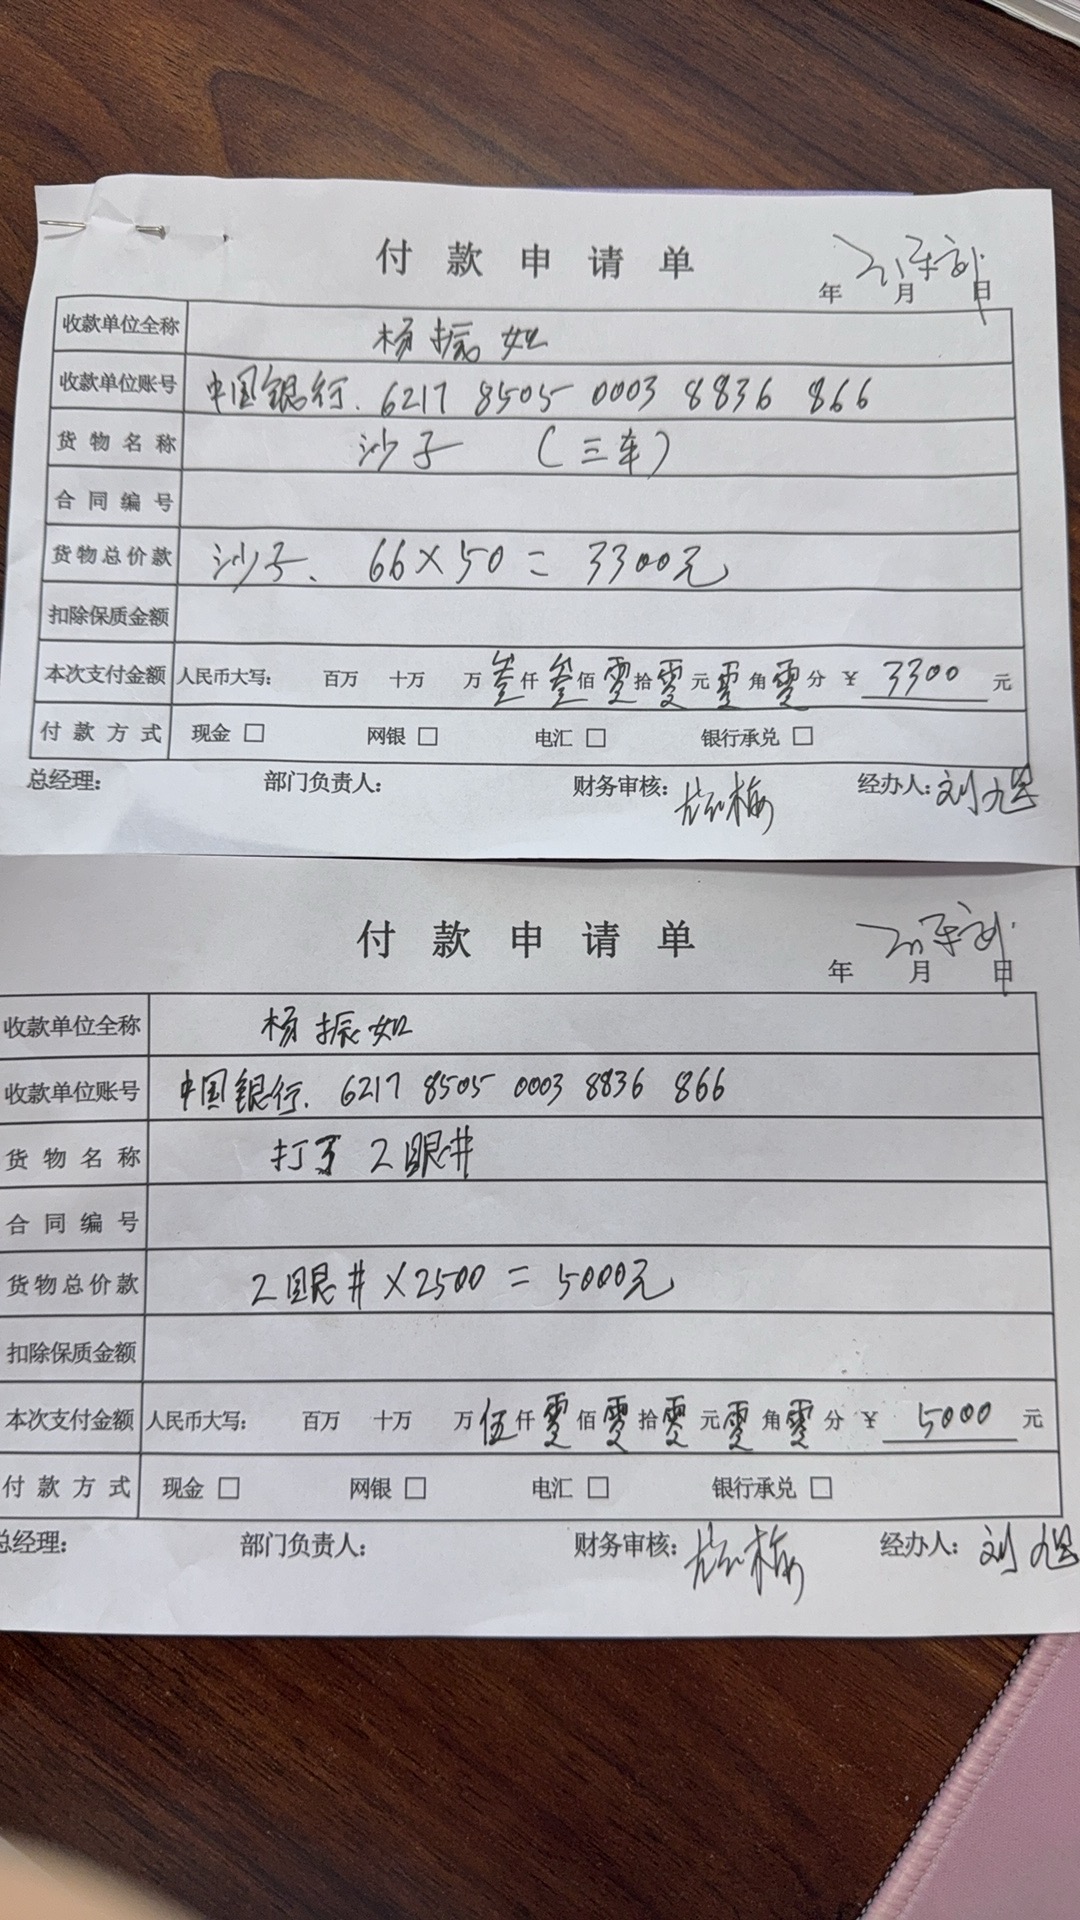 付款申请单
年 月 日
收款单位全称 杨振如
收款单位账号 中国银行. 6217 8505 0003 8836 866
货物名称 沙子 (三车)
合同编号
货物总价款 沙子、 66×50= 3300元
扣除保质金额
本次支付金额 人民币大写: 百万 十万 万叁仟叁佰零拾零元零角零分 ¥ 3300 元
付款方式 现金 □ 网银 □ 电汇 □ 银行承兑 □
总经理: 部门负责人: 财务审核: 经办人: 刘旭
付款申请单
年 月 日
收款单位全称 杨振如
收款单位账号 中国银行. 6217 8505 0003 8836 866
货物名称 打了2眼井
合同编号
货物总价款 2眼井×2500=5000元
扣除保质金额
本次支付金额 人民币大写: 百万 十万 万伍仟零佰零拾零元零角零分 ¥ 5000 元
付款方式 现金 □ 网银 □ 电汇 □ 银行承兑 □
总经理: 部门负责人: 财务审核: 经办人: 刘旭